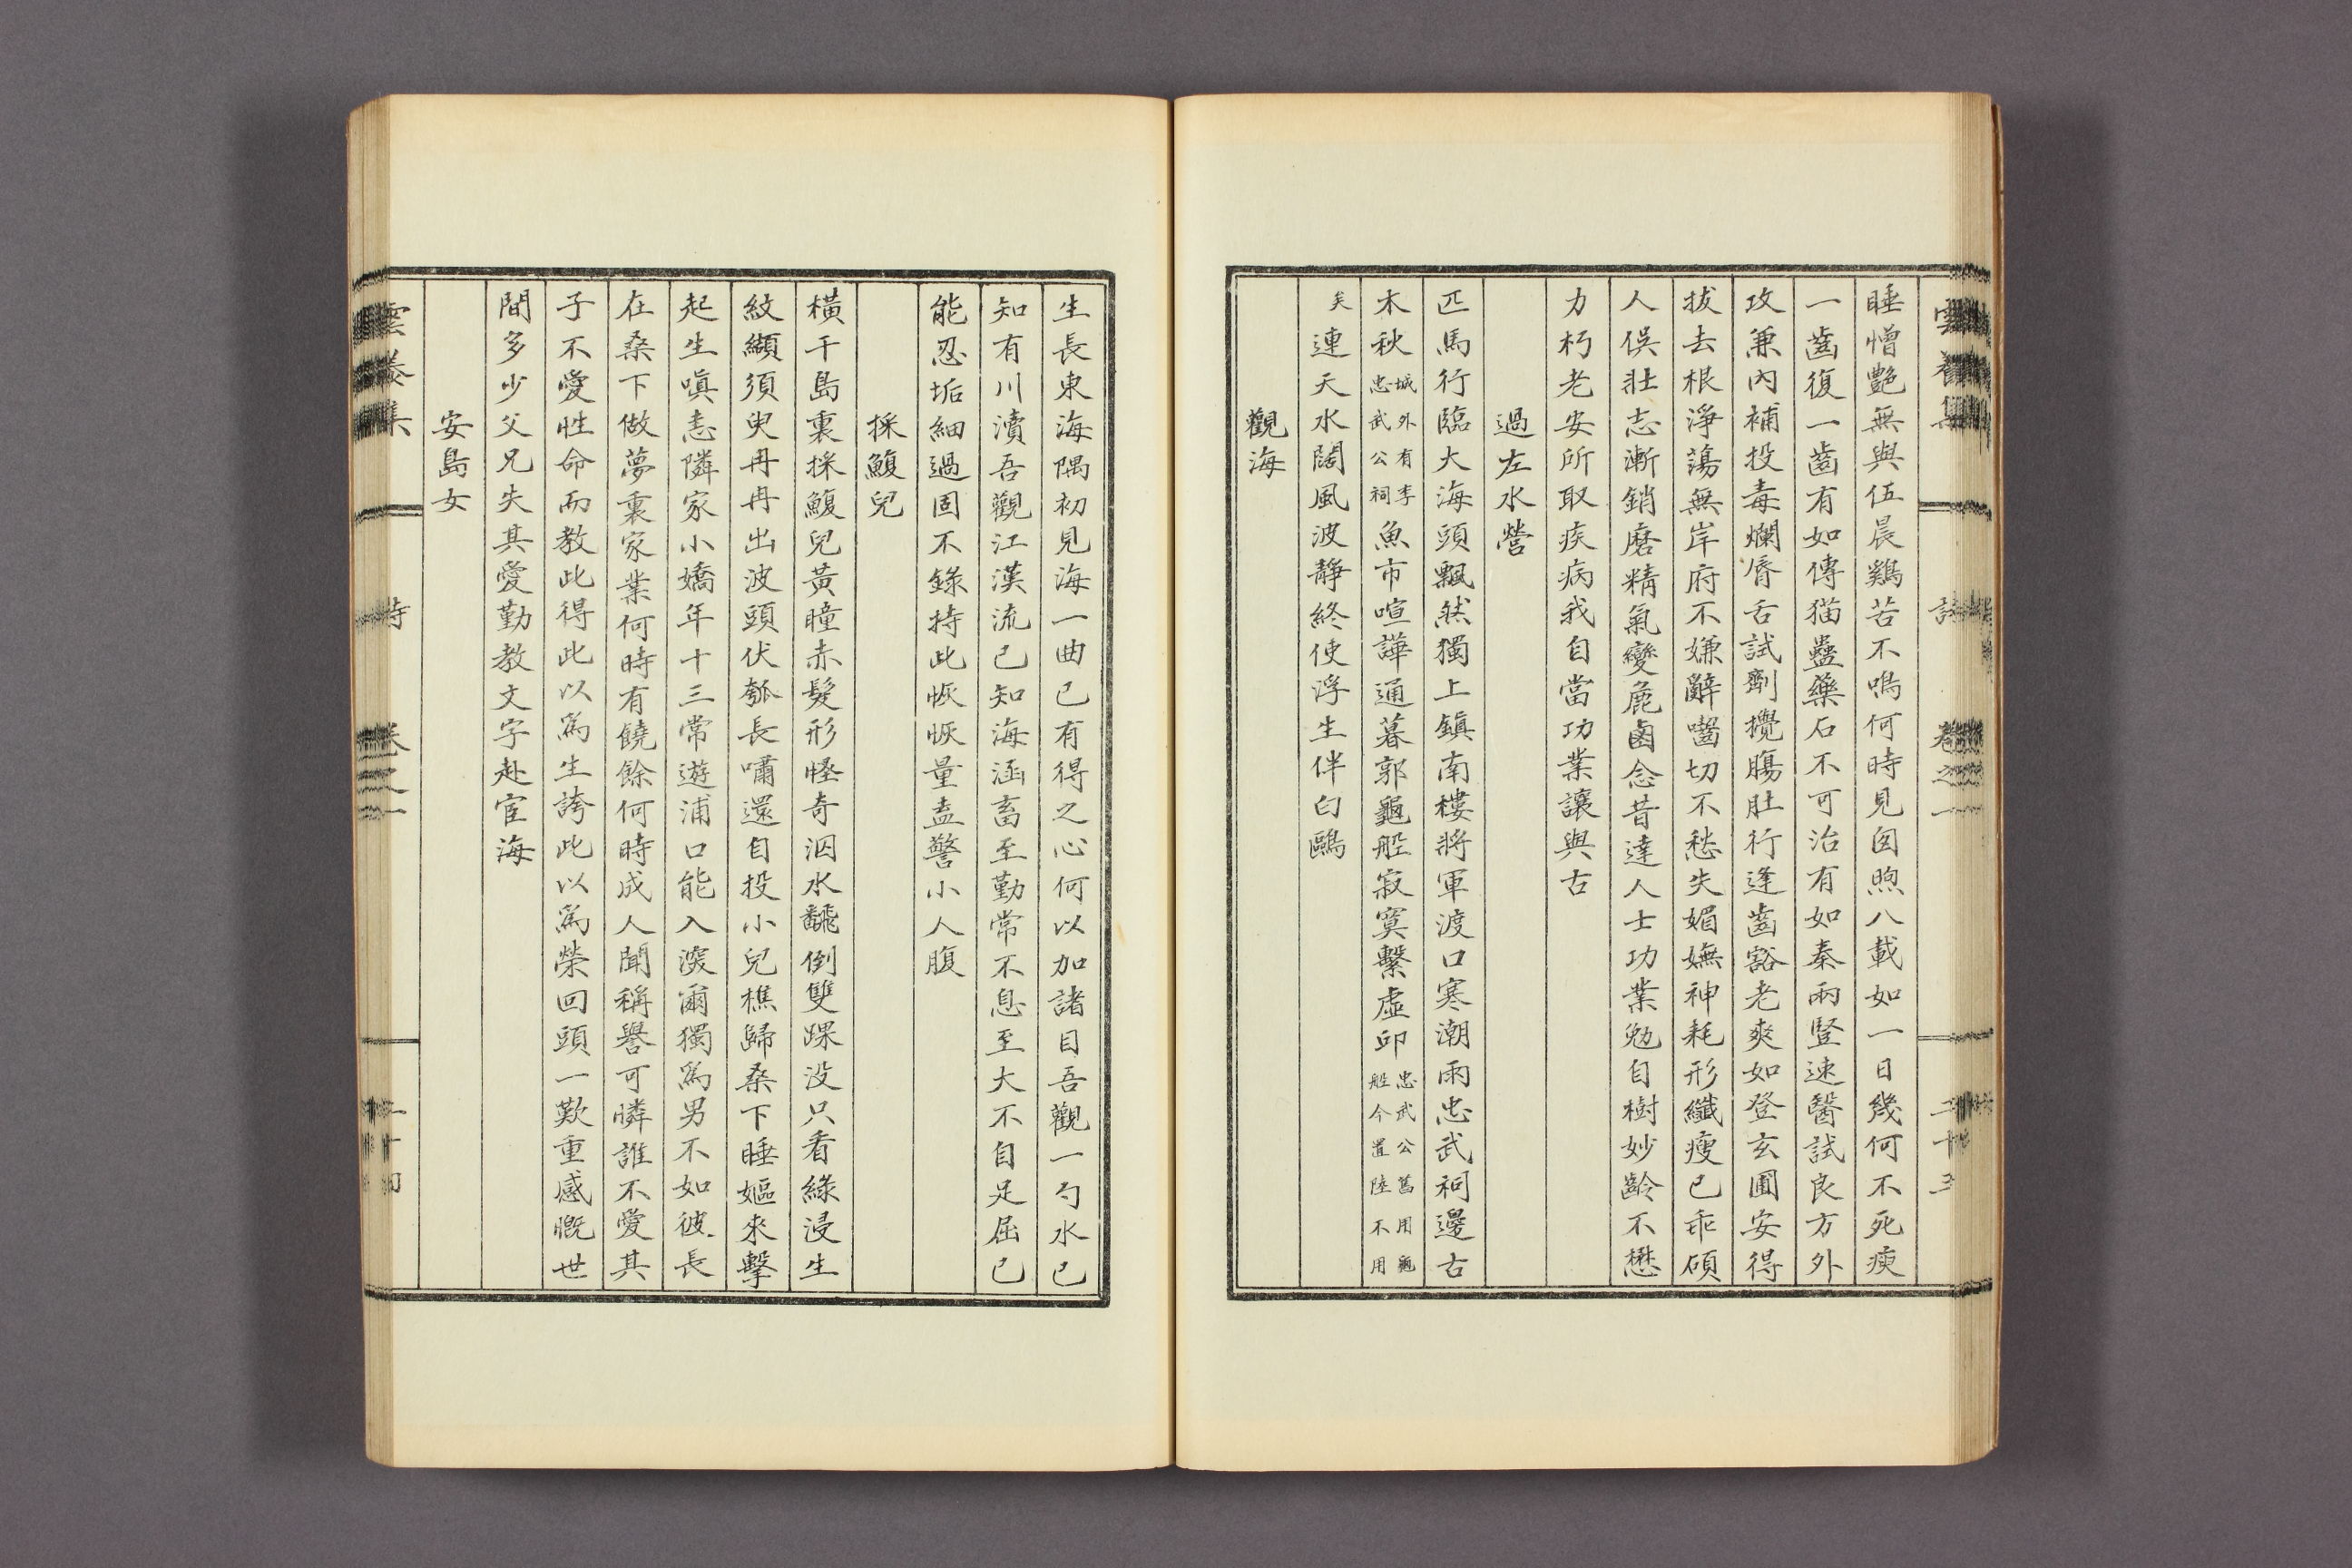 雲養集 詩 卷之一 二十三
睡憎艷無與伍晨鷄苦不鳴何時見囱煦八載如一日幾何不死瘐
一齒復一齒有如傳猫蠱藥石不可治有如秦兩豎速醫試良方外
攻兼內補投毒爛脣舌試劑攪腸肚行逢齒豁老爽如登玄圃安得
拔去根淨蕩無岸府不嫌辭囓切不愁失媚嫵神耗形纖瘦已乖碩
人俁壯志漸銷磨精氣變麁鹵念昔達人士功業勉自樹妙齡不懋
力朽老安所取疾病我自當功業讓與古
過左水營
匹馬行臨大海頭飄然獨上鎭南樓將軍渡口寒潮雨忠武祠邊古
木秋城外有李忠武公祠魚市喧譁通暮郭龜船寂寞繫虛卬忠武公舊用龜船今置陸不用
矣連天水闊風波靜終使浮生伴白鷗
觀海
生長東海隅初見海一曲已有得之心何以加諸目吾觀一勺水已
知有川瀆吾觀江漢流已知海涵畜至勤常不息至大不自足屈己
能忍垢細過固不錄持此恢恢量盍警小人腹
採鰒兒
橫干島裏採鰒兒黃瞳赤髮形怪奇泅水飜倒雙踝没只看綠浸生
紋纈須臾冉冉出波頭伏瓠長嘯還自投小兒樵歸桑下睡嫗來擊
起生嗔恚隣家小嬌年十三常遊浦口能入深爾獨爲男不如彼長
在桑下做夢裏家業何時有饒餘何時成人聞稱譽可憐誰不愛其
子不愛性命而教此得此以爲生誇此以爲榮回頭一歎重感慨世
間多少父兄失其愛勤教文字赴宦海
安島女
雲養集 詩 卷之一 二十四